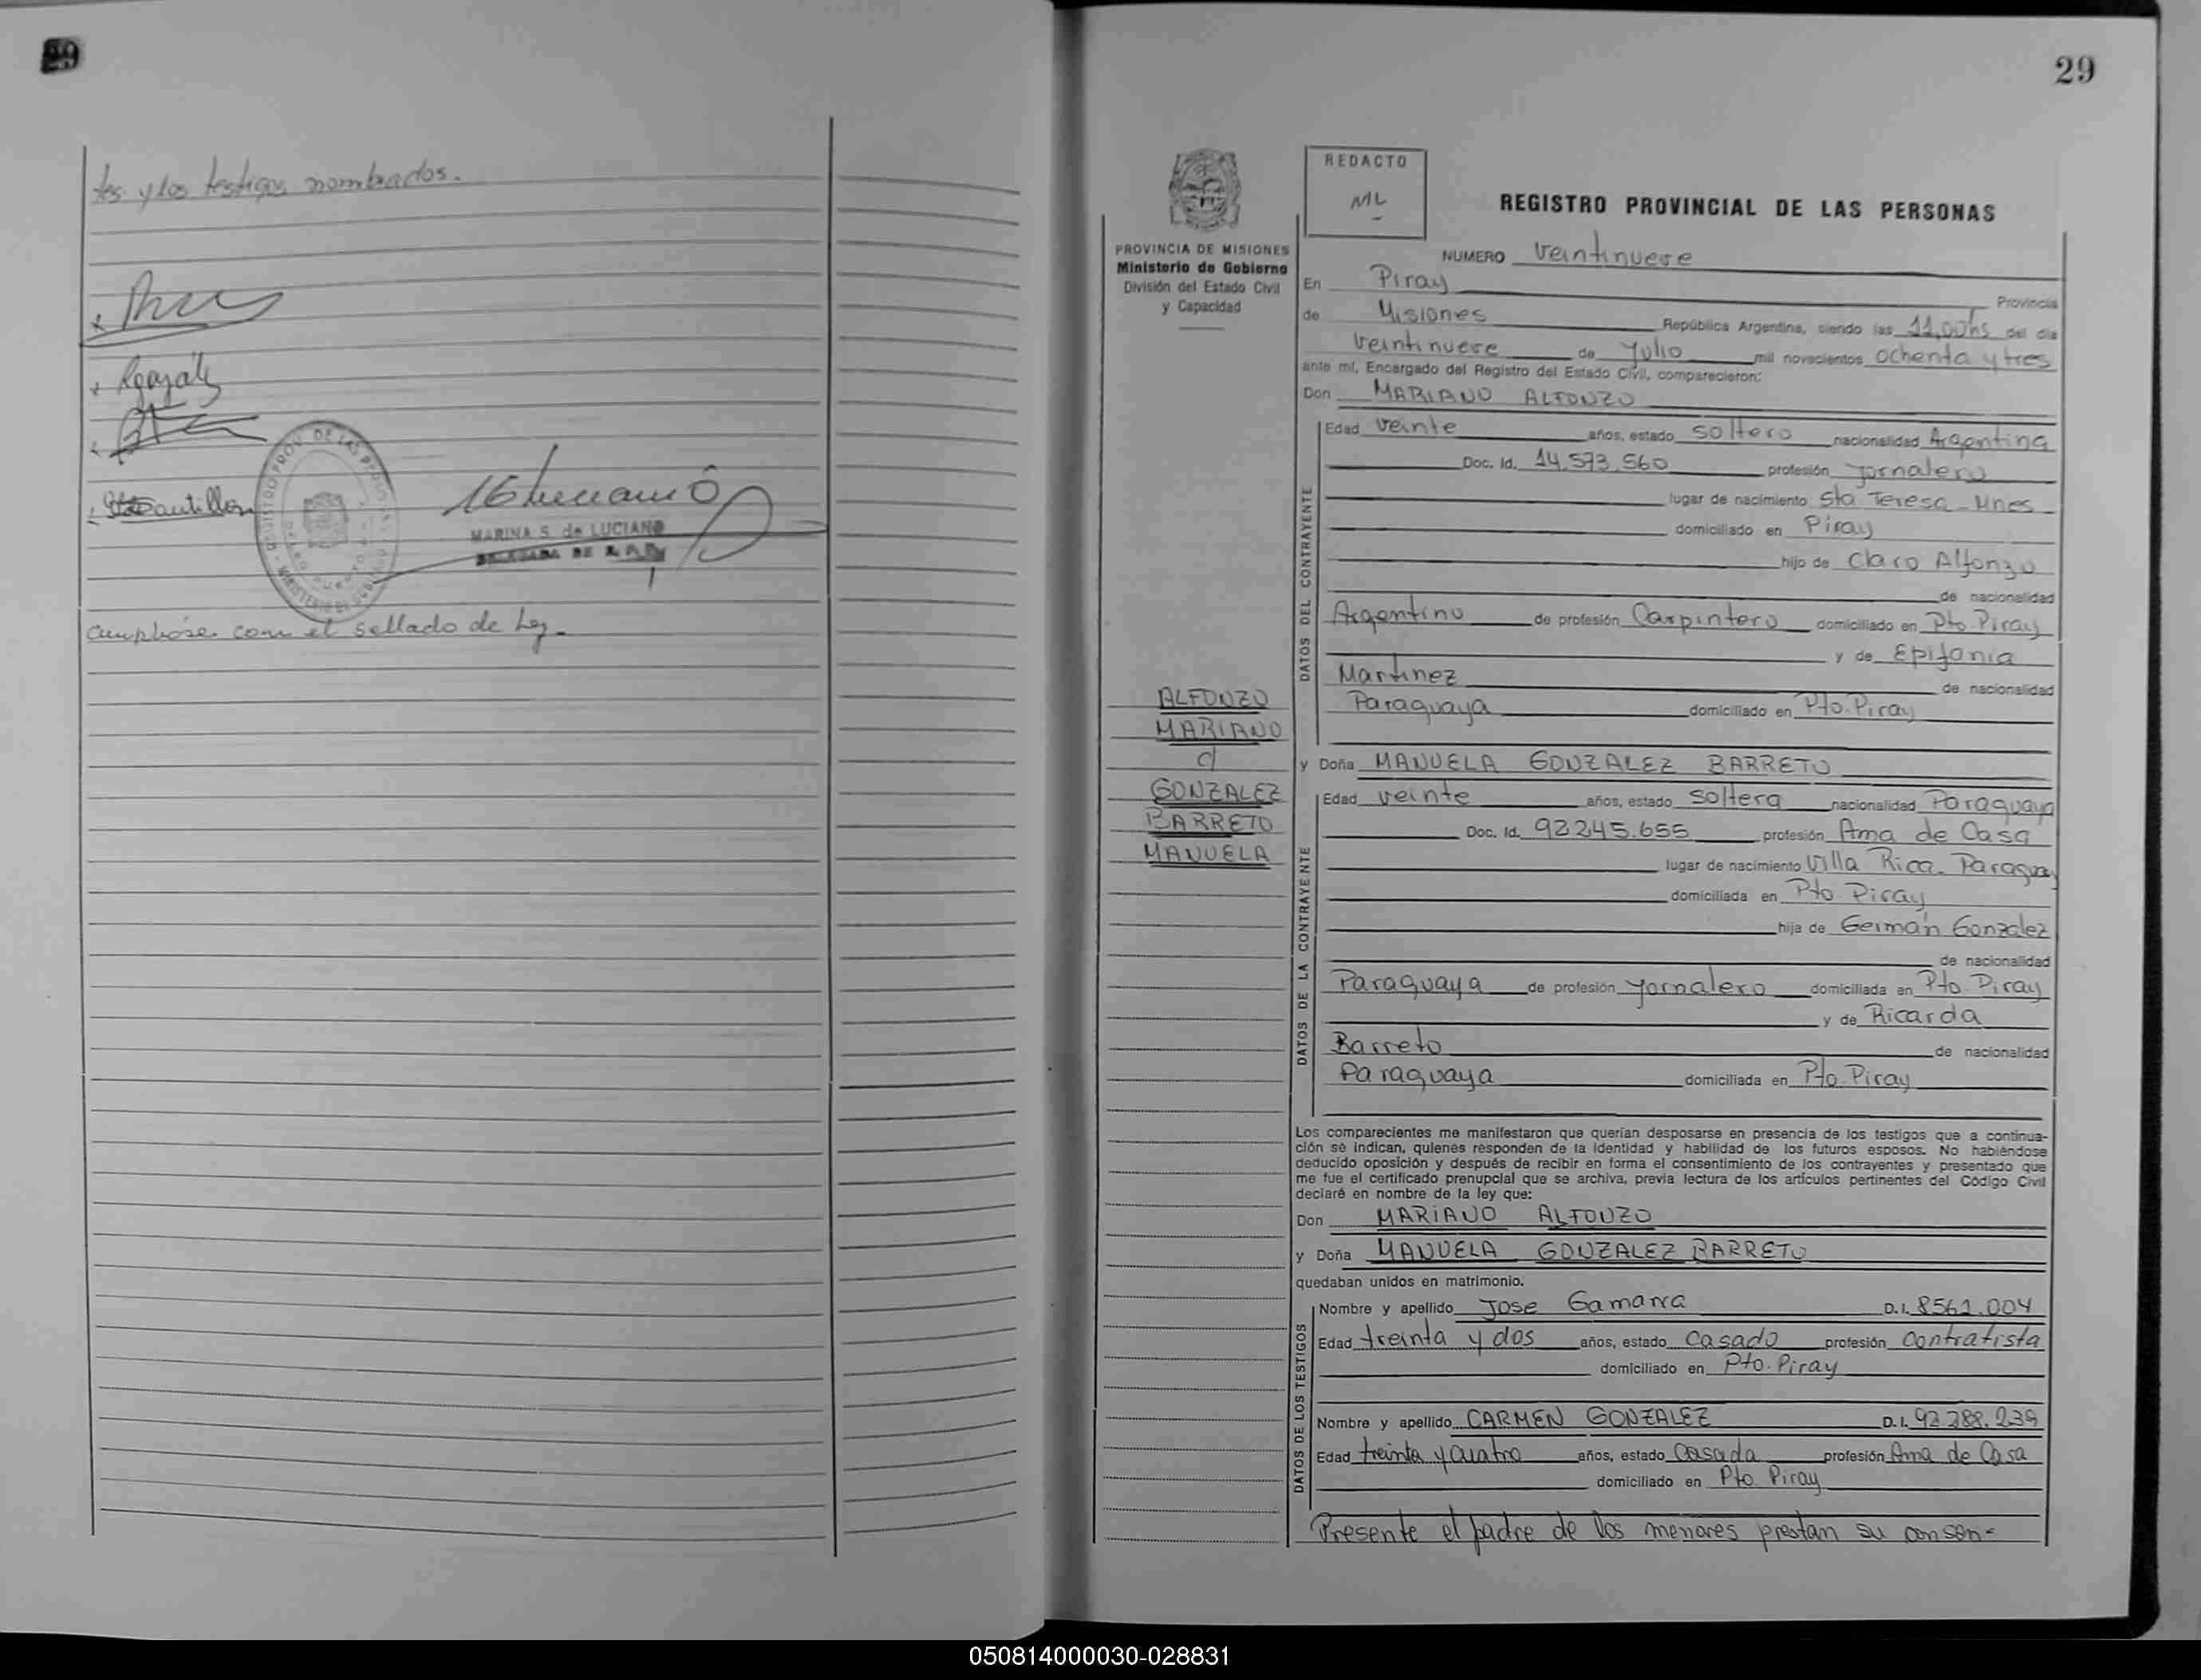 29
tes y los testigos nombrados.
MARINA S. de LUCIANO
Cumplióse con el sellado de Ley.
29
REDACTO
ML
REGISTRO PROVINCIAL DE LAS PERSONAS
PROVINCIA DE MISIONES
Ministerio de Gobierno
División del Estado Civil
y Capacidad
NUMERO veintinueve
En Piray Provincia
de Misiones República Argentina, siendo las 11,00hs del día
veintinueve de Julio mil novecientos ochenta y tres
ante mí, Encargado del Registro del Estado Civil, comparecieron:
Don MARIANO ALFONZO
Edad veinte años, estado soltero nacionalidad Argentina
Doc. Id. 14.573.560 profesión jornalero
lugar de nacimiento Sta Teresa - Mnes
domiciliado en Piray
hijo de Claro Alfonzo
de nacionalidad
Argentino de profesión Carpintero domiciliado en Pto. Piray
y de Epifania
Martinez de nacionalidad
Paraguaya domiciliado en Pto. Piray
DATOS DEL CONTRAYENTE
ALFONZO
MARIANO
c/
GONZALEZ
BARRETO
MANUELA
y Doña MANUELA GONZALEZ BARRETO
Edad veinte años, estado soltera nacionalidad Paraguaya
Doc. Id. 92245.655 profesión Ama de Casa
lugar de nacimiento Villa Rica - Paraguay
domiciliada en Pto. Piray
hija de Germán Gonzalez
de nacionalidad
Paraguaya de profesión jornalero domiciliada en Pto. Piray
y de Ricarda
Barreto de nacionalidad
Paraguaya domiciliada en Pto. Piray
DATOS DE LA CONTRAYENTE
Los comparecientes me manifestaron que querían desposarse en presencia de los testigos que a continua-
ción se indican, quienes responden de la identidad y habilidad de los futuros esposos. No habiéndose
deducido oposición y después de recibir en forma el consentimiento de los contrayentes y presentado que
me fue el certificado prenupcial que se archiva, previa lectura de los artículos pertinentes del Código Civil
declaré en nombre de la ley que:
Don MARIANO ALFONZO
y Doña MANUELA GONZALEZ BARRETO
quedaban unidos en matrimonio.
Nombre y apellido Jose Gamarra D.I. 8561.004
Edad treinta y dos años, estado casado profesión contratista
domiciliado en Pto. Piray
Nombre y apellido CARMEN GONZALEZ D.I. 92.288.239
Edad treinta y cuatro años, estado Casada profesión Ama de Casa
domiciliado en Pto. Piray
DATOS DE LOS TESTIGOS
Presente el padre de los menores prestan su consen-
050814000030-028831